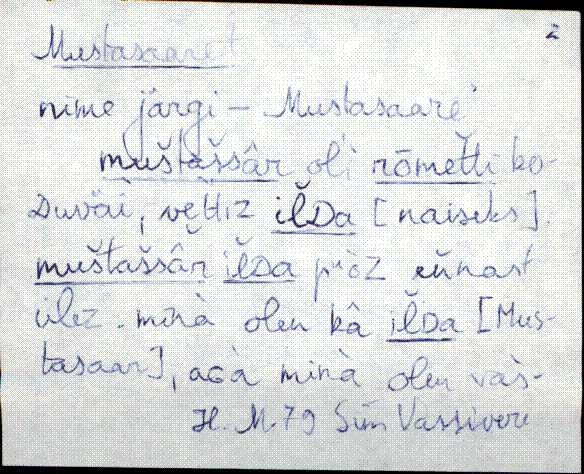 2
Mustasaare
nime järgi – Mustasaare
muštaššâr oli rōmetti ko-
Duväi, vettiz ilDa [naiseks].
muštaššâr ilDa pöz eunast
ülez. minà olen kâ ilDa [Mus-
tasaar], aGa minà olen vàs-
H. M. 79 Sim Vassivere